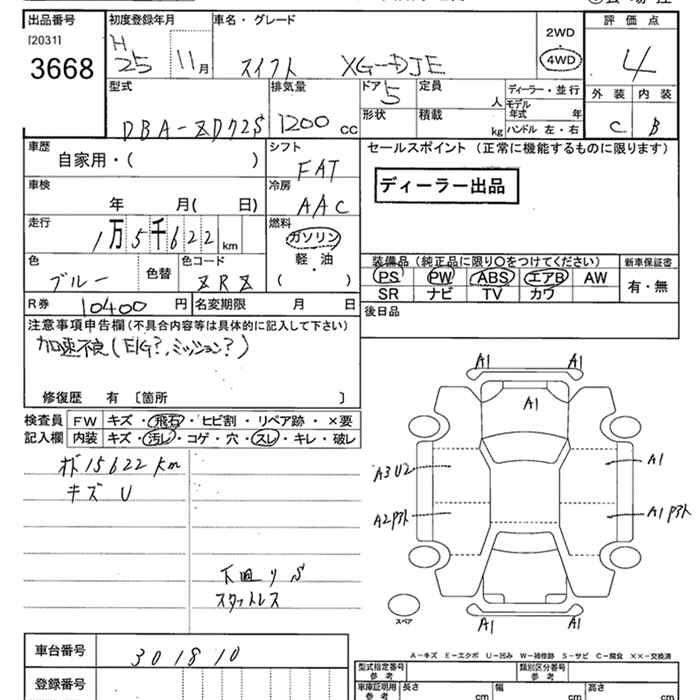 出品番号 初度登録年月 車名・グレード 評価点
[2031]
3668 H25 11月 スイフト XG-DJE 2WD 4WD 4
型式 排気量 ドア 5 定員 人 ディーラー・並行 外装 内装
DBA-ZD72S 1200cc 形状 積載 kg モデル年式 年 C B
ハンドル 左・右
車歴 シフト セールスポイント (正常に機能するものに限ります)
自家用・( ) FAT
車検 冷房 ディーラー出品
年 月( 日) AAC
走行 燃料
1万5千622km ガソリン
軽・油
( )
色 色替 色コード 装備品 (純正品に限り○をつけてください) 新車保証書
ブルー ZRZ PS PW ABS エアB AW 有・無
SR ナビ TV カワ
R券 10400円 名変期限 月 日 後日品
注意事項申告欄(不具合内容等は具体的に記入して下さい)
加速不良(E/G?,ミッション?)
修復歴 有 〔箇所 〕
検査員 FW キズ・飛石・ヒビ割・リペア跡・×要
記入欄 内装 キズ・汚レ・コゲ・穴・スレ・キレ・破レ
15622km
キズ U
下回りS
スタットレス
A1 A1
A1
A3U2 A1
A2 A1
スペア
A1 A1
A-キズ E-エクボ U-凹み W-補修跡 S-サビ C-腐食 ××-交換済
車台番号 301810
型式指定番号 参考 類別区分番号 参考
登録番号 車庫証明用 参考 長さ cm 幅 cm 高さ cm